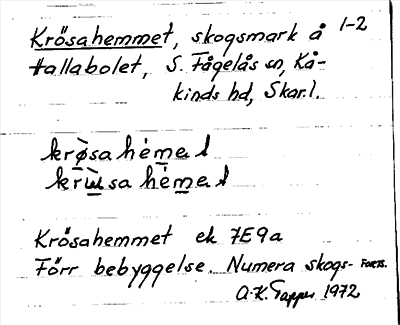 Krösahemmet, skogsmark å 1-2
Hallabolet, S. Fågelås sn, Kå-
kinds hd, Skar.l.
krøsa hème t
Krösahemmet ek 7E9a
Förr bebyggelse. Numera skogs- FORTS.
A.K. Tapper 1972